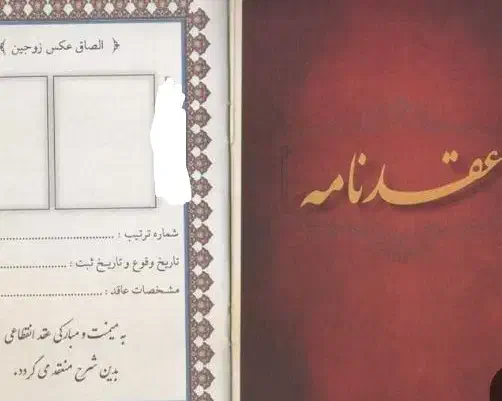 عقدنامه
﴿ الصاق عکس زوجین ﴾
شماره ترتیب : ..............................
تاریخ وقوع و تاریخ ثبت : ....................
مشخصات عاقد : ..............................
به میمنت و مبارکی عقد انقطاعی
بدین شرح منعقد می گردد.